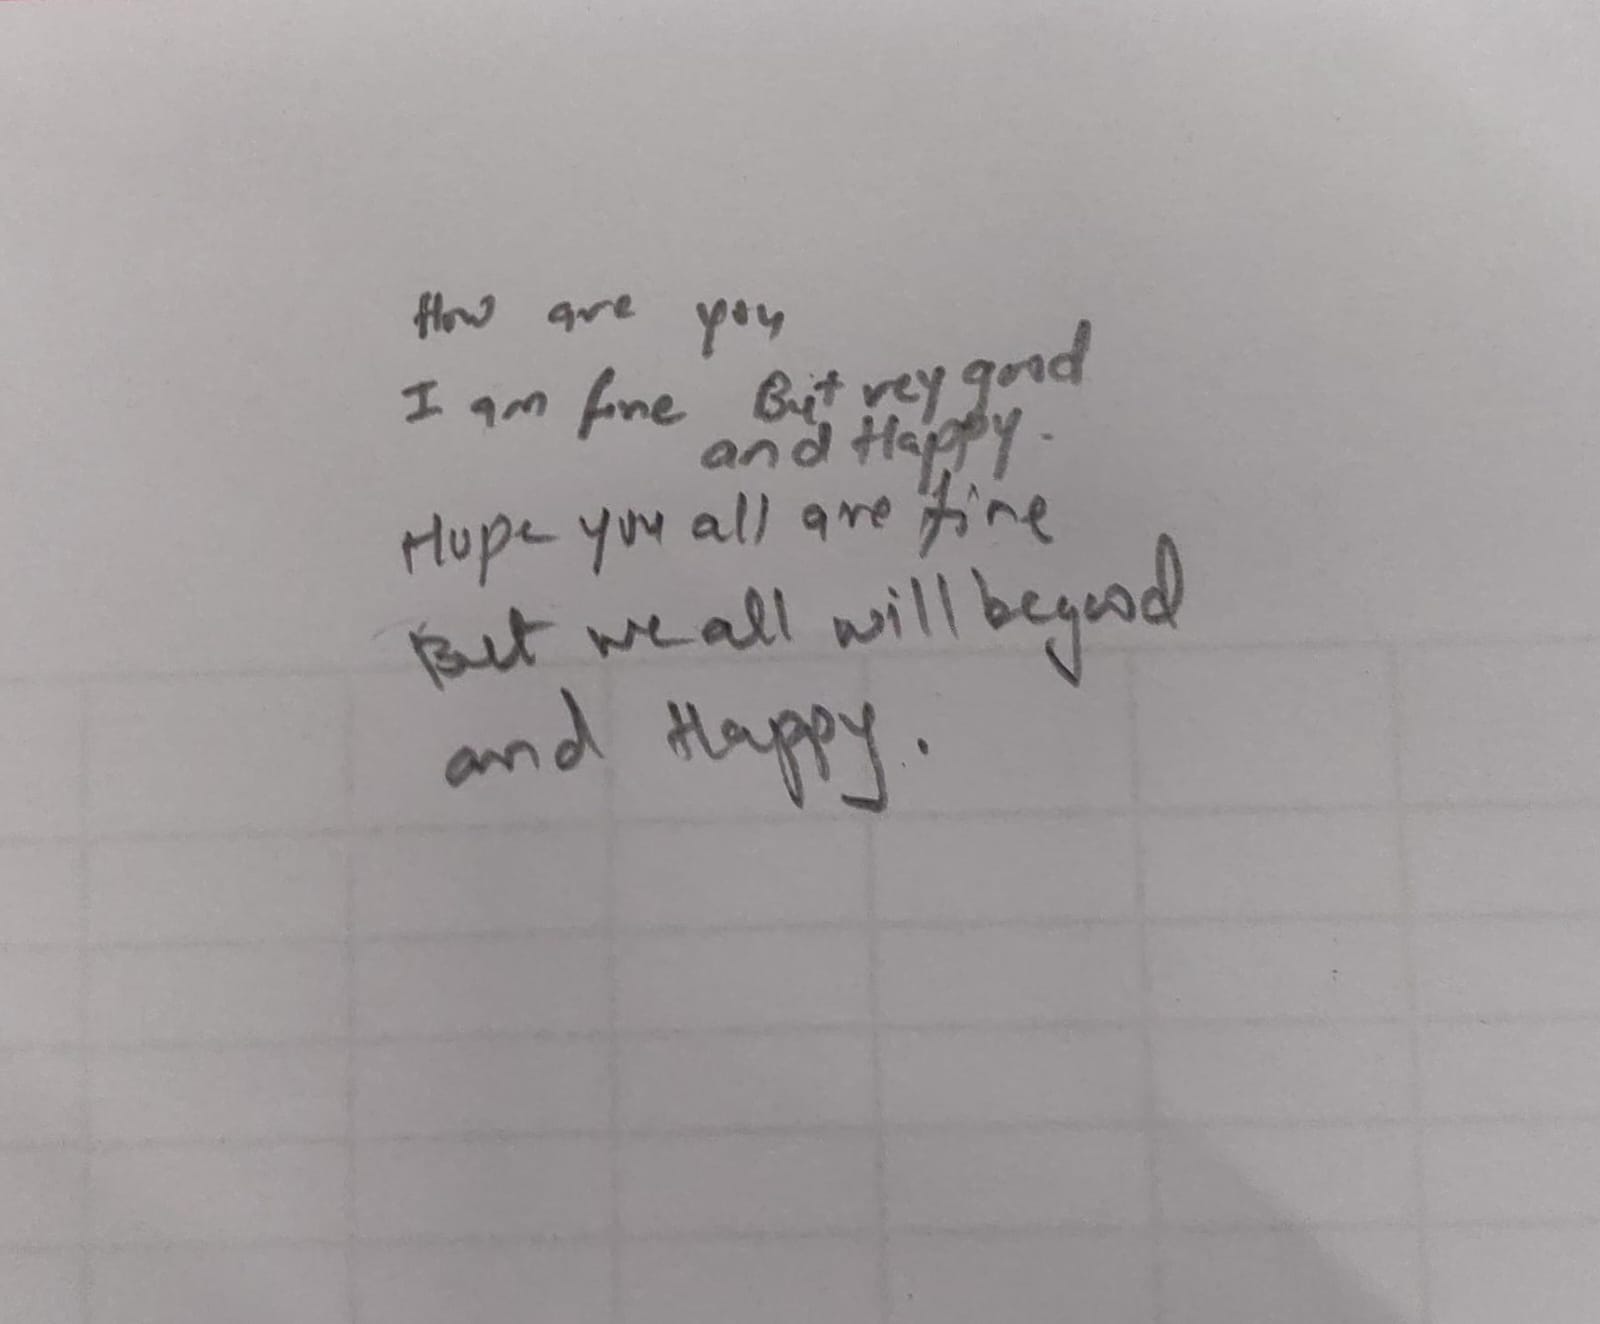 How are you
I am fine But vey good
and Happy.
Hope you all are fine
But we all will be good
and Happy.